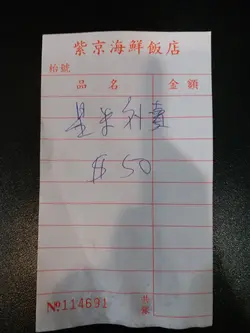 紫京海鮮飯店
枱號
品名 金額
星米补賣
$50
№114691 共銀